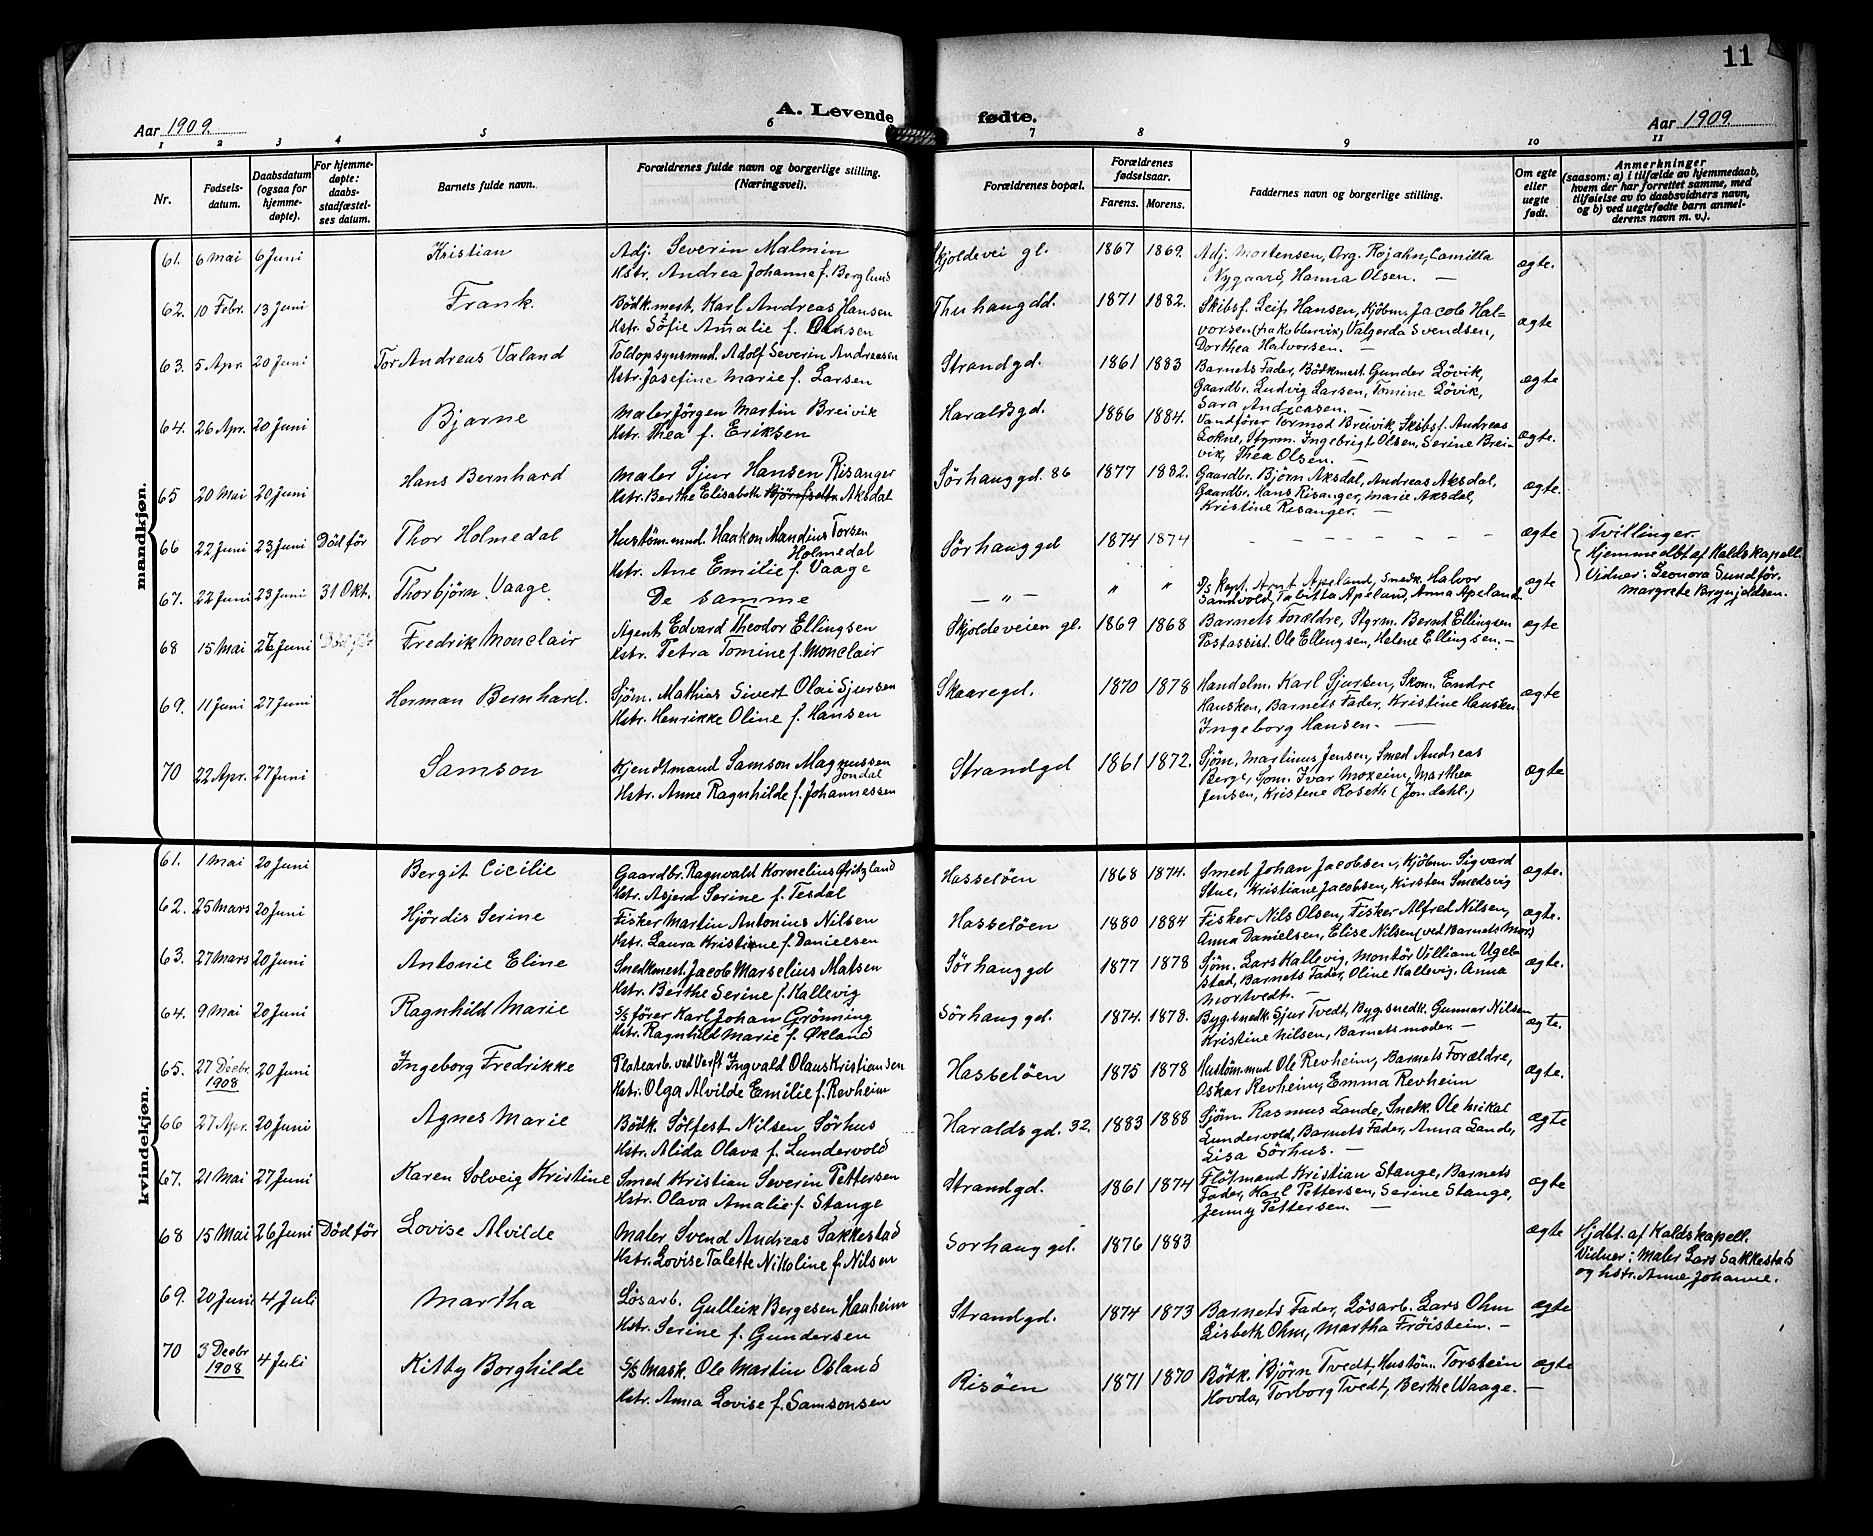 11
A. Levende fødte.
Aar 1909.
Aar 1909.
1 2 3 4 5 6 7 8 9 10 11
Nr.
Fødsels-
datum.
Daabsdatum
(ogsaa for
hjemme-
døpte).
For hjemme-
døpte:
daabs-
stadfæstel-
ses datum.
Barnets fulde navn.
Forældrenes fulde navn og borgerlige stilling.
(Næringsvei).
Forældrenes bopæl.
Forældrenes
fødselsaar.
Farens. Morens.
Faddernes navn og borgerlige stilling.
Om egte
eller
uegte
født.
Anmerkninger
(saasom: a) i tilfælde av hjemmedaab,
hvem der har forrettet samme, med
tilføielse av to daabsvidners navn,
og b) ved uegtefødte barn anmel-
derens navn m. v.).
mandkjøn.
61. 6 Mai 6 Juni Kristian Adj. Severin Malmin Skjoldevei gl. 1867 1869. Adj. Mortensen, Org. Rojahn, Camilla ægte.
Hstr. Andrea Johanne f. Berglund Nygaard, Hanna Olsen. —
62. 10 Febr. 13 Juni Frank Bödk.mest. Karl Andreas Hansen Thuhaugdd. 1871 1882. Skibsf. Leif Hansen, Kjöbm. Jacob Hal- ægte
Hstr. Sofie Amalie f. Olsen vorsen (fra Kobbervik), Valgerda Svendsen,
Dorthea Halvorsen. —
63. 5 Apr. 20 Juni Tor Andreas Valand Toldopsynsmd. Adolf Severin Andreasen Strandgd. 1861 1883 Barnets Fader, Bödkmest. Gunder Lövik, ægte
Hstr. Josefine Marie f. Larsen Gaardbr. Ludvig Larsen, Tomine Lövik,
Sara Andreasen. —
64. 26 Apr. 20 Juni Bjarne Maler Jörgen Martin Breivik Haraldsgd. 1886 1884. Vandförer Tormod Breivik, Skibsf. Andreas ægte.
Hstr. Thea f. Eriksen Lokne, Styrm. Ingebrigt Olsen, Serine Brei-
vik, Thea Olsen. —
65 20 Mai 20 Juni Hans Bernhard Maler Sjur Hansen Risanger Sørhauggd. 86 1877 1882. Gaardbr. Björn Aksdal, Andreas Aksdal, ægte.
Hstr. Berthe Elisabeth Bjørnsdtr. Aksdal Gaardbr. Hans Risanger, Marie Aksdal,
Kristine Risanger. —
66 22 Juni 23 Juni Död för Thor Holmedal Hustöm.mnd. Haakon Mandius Torsen Sørhauggd 1874 1874 — — — — — — — ægte Tvillinger.
Holmedal Hjemmedbt af Kaldskapell.
Hstr. Ane Emilie f. Vaage
67. 22 Juni 23 Juni 31 Okt. Thorbjörn Vaage De samme — " — " " S/s Kapt. Arnt Apeland, Snedk. Halvor ægte Vidner: Leonora Sundför.
Sandvold, Tabitta Apeland, Anna Apeland Margrete Brynjeldsen.
68 15 Mai 27 Juni Fredrik Monclair Agent Edvard Theodor Ellingsen Skjoldeveien gl. 1869 1868 Barnets Foreldre, Styrm. Bernt Ellingsen ægte
Hstr. Petra Tomine f. Monclair Postassist. Ole Ellingsen, Helene Ellingsen. —
69. 11 Juni 27 Juni Herman Bernhard. Sjöm. Mathias Sivert Olai Sjursen Skaaregd. 1870 1878 Handelm. Karl Sjursen, Skom. Endre ægte
Hstr. Henrikke Oline f. Hansen Hausken, Barnets Fader, Kristine Hausken
Ingeborg Hansen. —
70 22 Apr. 27 Juni Samson Kjendtmand Samson Magnussen Strandgd 1861 1872. Sjöm. Martinus Jensen, Smed Andreas ægte
Jondal Berge, Sjom. Ivar Moxeim, Marthea
Hstr. Anne Ragnhilde f. Johannessen Jensen, Kristene Roseth (Jondahl.)
kvindekjøn.
61. 1 Mai 20 Juni Bergit Cicilie Gaardbr. Ragnvald Kornelius Fritzland Hasseløen 1868 1874. Smed Johan Jacobsen, Kjöbm. Sigvard ægte.
Hstr. Asjerd Serine f. Tesdal Stue, Kristiane Jacobsen, Kirsten Smedsvig
62. 25 Mars 20 Juni Hjördis Serine Fisker Martin Antonius Nilsen Hasseløen 1880 1884 Fisker Nils Olsen, Fisker Alfred Nilsen, ægte.
Hstr. Laura Kristiene f. Danielsen Anna Danielsen, Elise Nilsen (ved Barnets Mor)
63. 27 Mars 20 Juni Antonie Eline Smedkmest. Jacob Marselius Matsen Sørhauggd 1877 1878 Sjöm. Lars Kallevig, Montör Villiam Ugel- ægte.
Hstr. Berthe Serine f. Kallevig stad, Barnets Fader, Oline Kallevig, Anna
Mortvedt. —
64. 9 Mai 20 Juni Ragnhild Marie S/s förer Karl Johan Grönning Sørhauggd. 1874. 1878. Bygsnedk. Sjur Tvedt, Bygsnedk. Gunnar Nilsen ægte.
Hstr. Ragnhild Marie f. Økland Kristine Nilsen, Barnets moder. —
65. 27 Decbr. 1908 20 Juni Ingeborg Fredrikke Platearb. ved Verft Ingvald Olaus Kristiansen Hasseløen 1875 1878 Hustömmnd Ole Revheim, Barnets Forældre, ægte.
Hstr. Olga Alvilde Emilie f. Revheim Oskar Revheim, Emma Revheim
66 27 Apr. 20 Juni Agnes Marie Bödk. Sölfest Nilsen Sörhus Haraldsgd. 32. 1883 1888 Sjöm. Rasmus Lande, Snedk. Ole Mikal ægte
Hstr. Alida Olava f. Lundervold Lundervold, Barnets Fader, Anna Lande,
Lisa Sörhus. —
67. 21 Mai 27 Juni Karen Solveig Kristine Smed Kristian Severin Pettersen Strandgd. 1861 1874 Flötmand Kristian Stange, Barnets ægte
Hstr. Olava Amalie f. Stange Fader, Karl Pettersen, Serine Stange,
Jenny Pettersen. —
68 15 Mai 26 Juni Död för Lovise Alvilde Maler Svend Andreas Sakkestad Sørhauggd. 1876 1883 ægte Hjdbt. af Kaldskapell.
Hstr. Lovise Talette Nikoline f. Nilsen Vidner: Maler Lars Sakkestad
og hstr. Anne Johanne.
69. 20 Juni 4 Juli Martha Lösarb. Gulleik Bergesen Hauheim Strandgd. 1874 1873 Barnets Fader, Lösarb. Lars Ohm ægte
Hstr. Serine f. Gundersen Lisbeth Ohm, Martha Fröistein. —
70 3 Decbr 1908 4 Juli Kitty Borghilde S/s Mask. Ole Martin Osland Risöen 1871 1870 Bödk. Björn Tvedt, Hustöm. Torstein ægte
Hstr. Anna Lovise f. Samsonsen Hovda, Torborg Tvedt, Berthe Waage. —